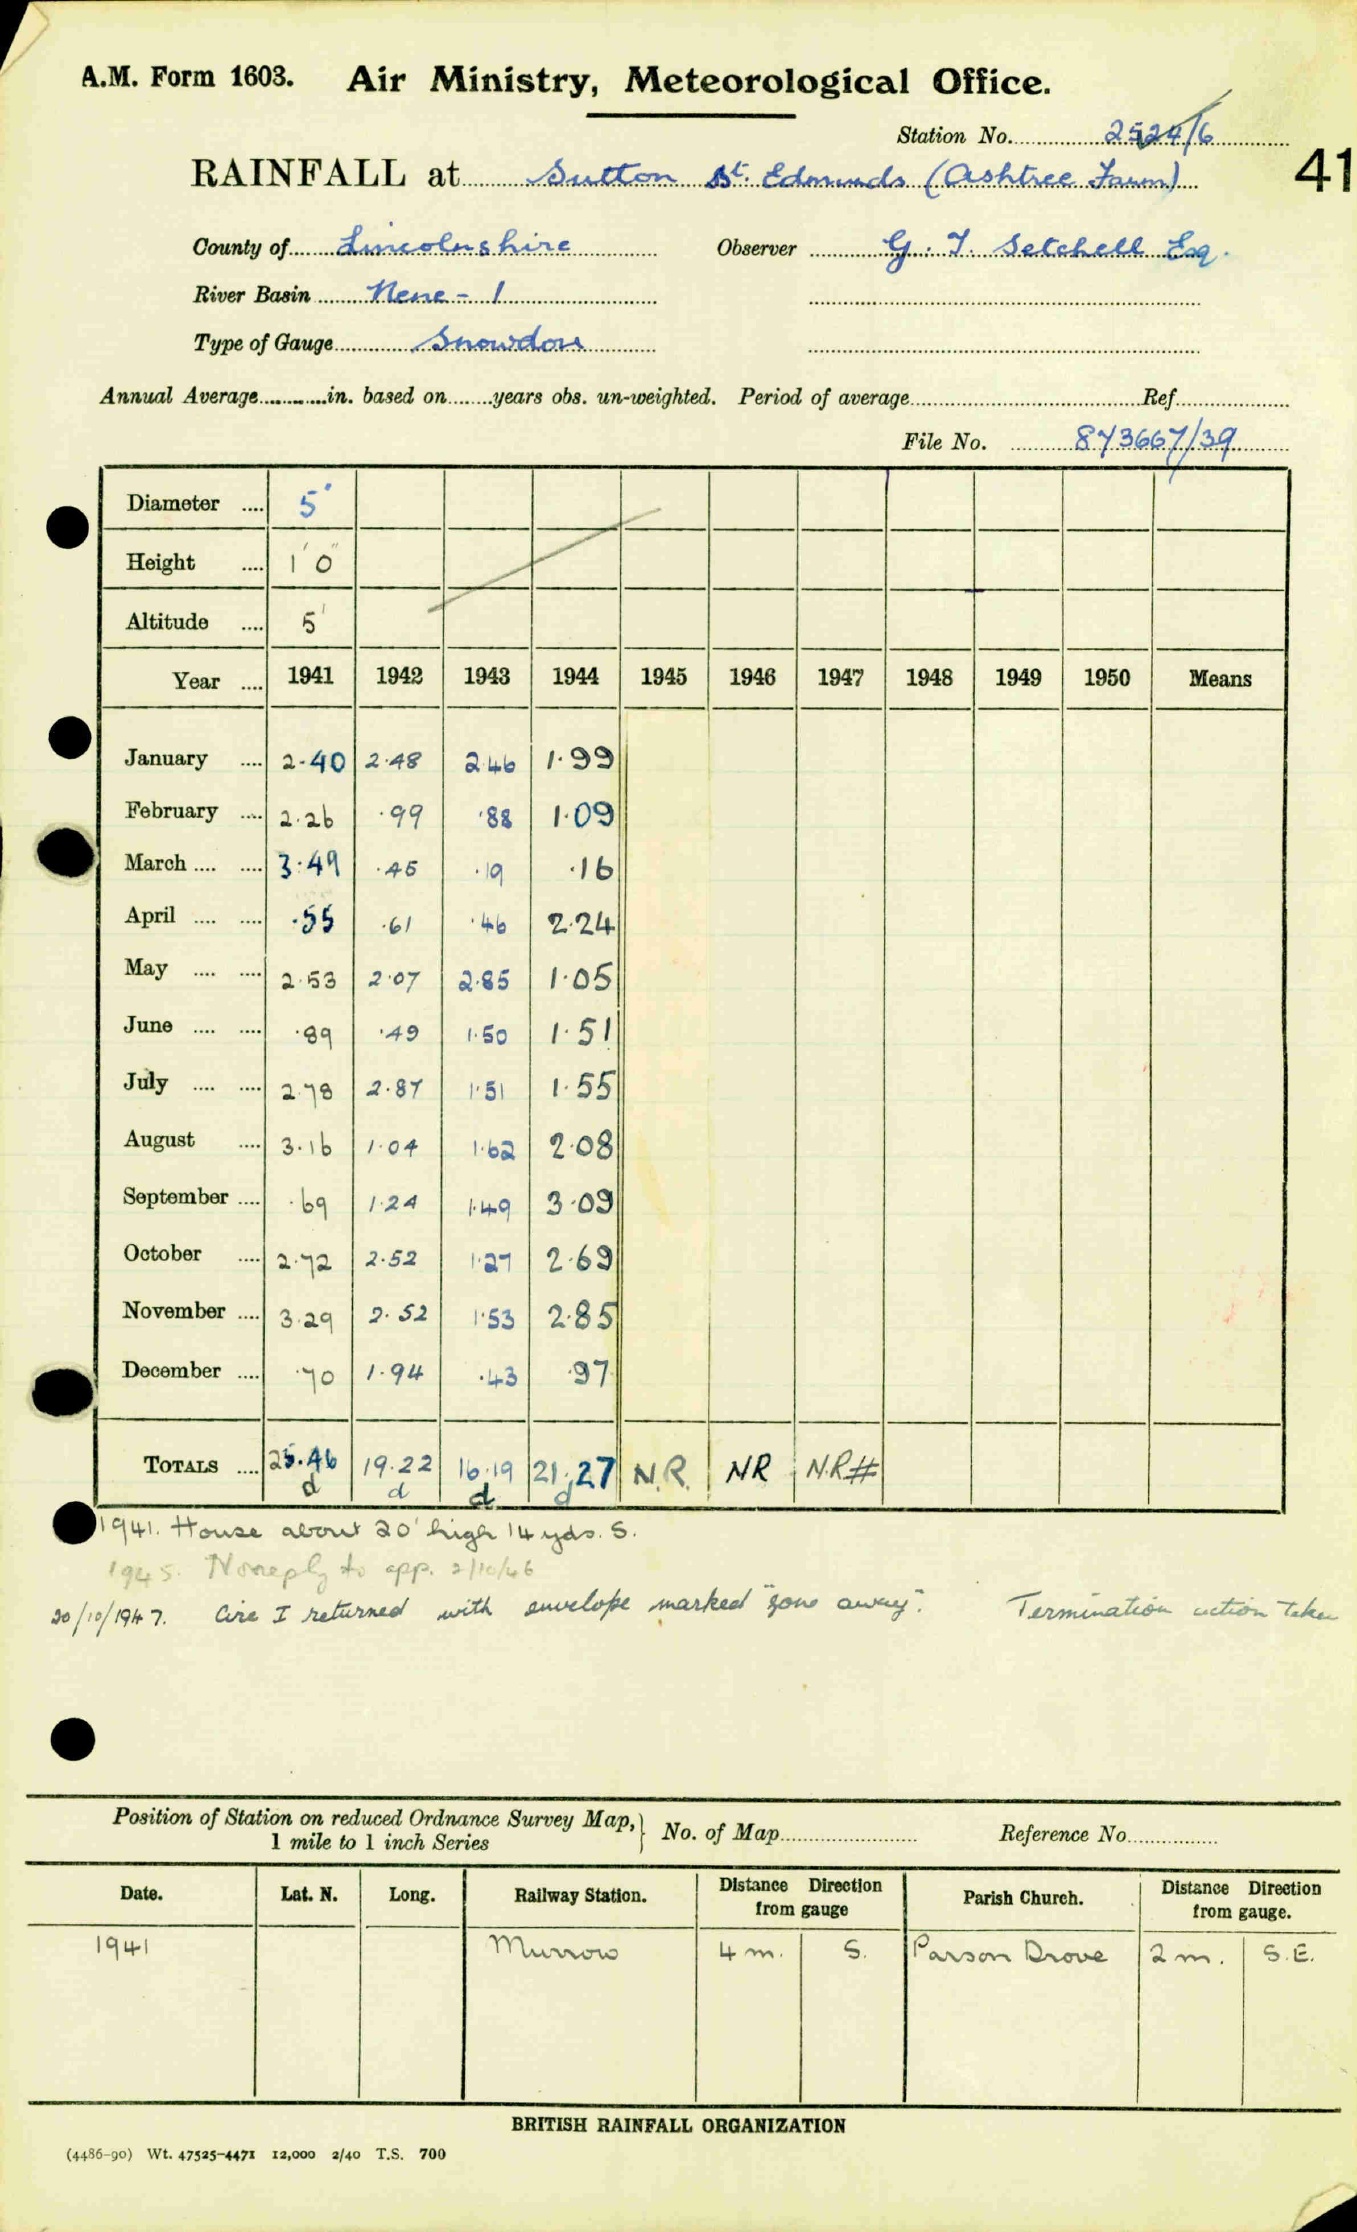 A.M. Form 1603. Air Ministry, Meteorological Office.
Station No. 2524/6
RAINFALL at Sutton St. Edmunds (Ashtree Farm) 41
County of Lincolnshire Observer G. T. Setchell Esq.
River Basin Nene - 1
Type of Gauge Snowdon
Annual Average in. based on years obs. un-weighted. Period of average Ref.
File No. 873667/39
Diameter 5"
Height 1' 0"
Altitude 5'
Year 1941 1942 1943 1944 1945 1946 1947 1948 1949 1950 Means
January 2.40 2.48 2.46 1.99
February 2.26 .99 .88 1.09
March 3.49 .45 .19 .16
April .55 .61 .46 2.24
May 2.53 2.07 2.85 1.05
June .89 .49 1.50 1.51
July 2.78 2.87 1.51 1.55
August 3.16 1.04 1.62 2.08
September .69 1.24 1.49 3.09
October 2.72 2.52 1.27 2.69
November 3.29 2.52 1.53 2.85
December .70 1.94 .43 .97
TOTALS 25.46 19.22 16.19 21.27 N.R. NR N.R.#
d d d d
1941. House about 20' high 14 yds. S.
1945. No reply to app. 2/10/46
20/10/1947. Circ I returned with envelope marked "gone away". Termination action taken
Position of Station on reduced Ordnance Survey Map, } No. of Map Reference No.
1 mile to 1 inch Series
Date. Lat. N. Long. Railway Station. Distance Direction from gauge Parish Church. Distance Direction from gauge.
1941 Murrow 4 m. S. Parson Drove 2 m. S.E.
BRITISH RAINFALL ORGANIZATION
(4486-90) Wt. 47525-4471 12,000 2/40 T.S. 700